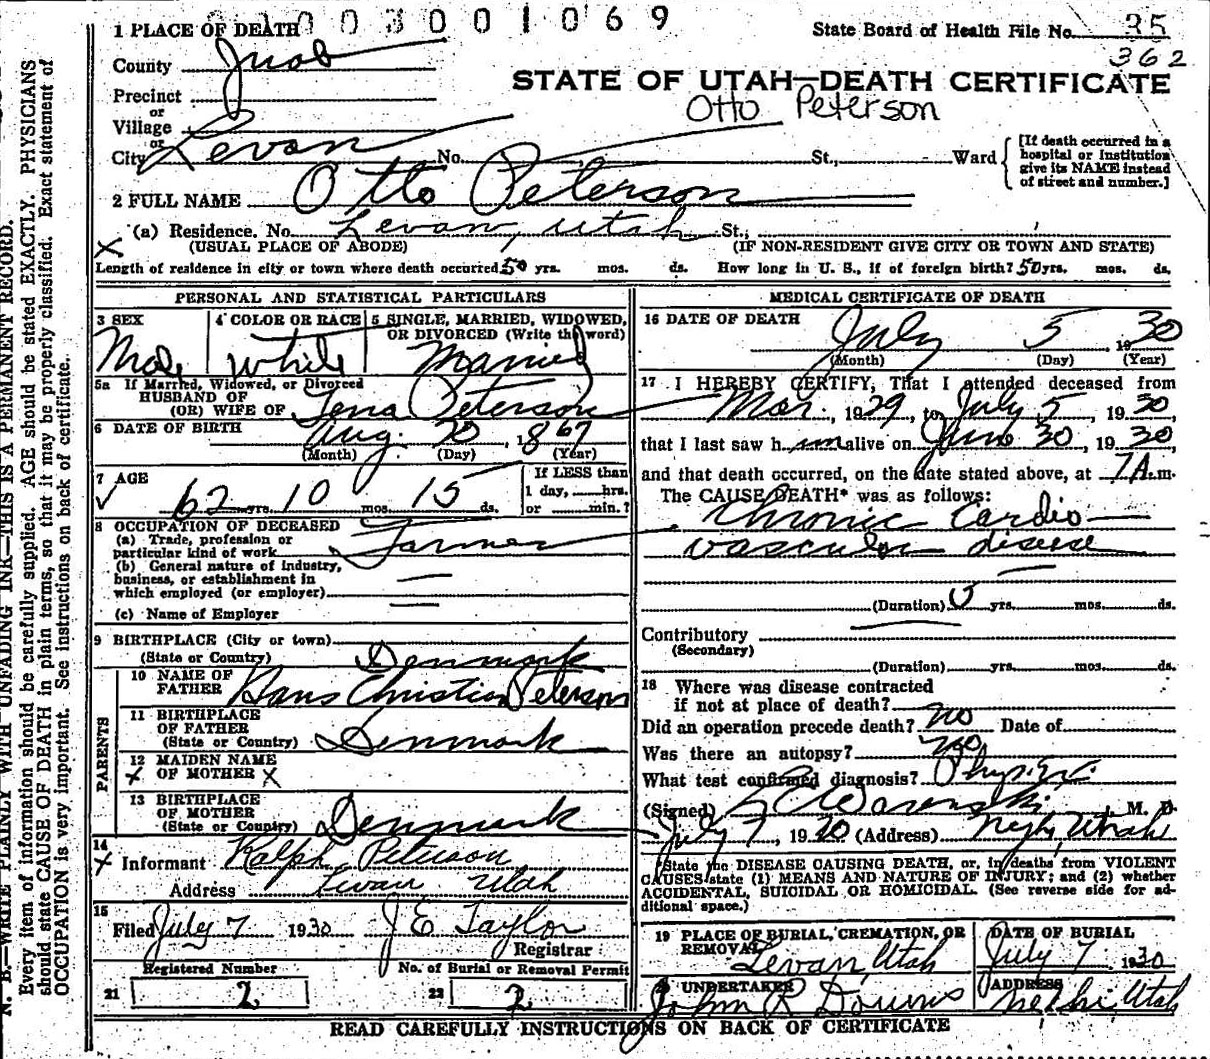 003001069
1 PLACE OF DEATH
State Board of Health File No. 35
362
County Juab
STATE OF UTAH—DEATH CERTIFICATE
Precinct
Otto Peterson
or
Village
or
City Levan No. St., Ward
[If death occurred in a
hospital or institution
give its NAME instead
of street and number.]
2 FULL NAME Otto Peterson
(a) Residence. No. Levan, Utah St.,
(USUAL PLACE OF ABODE) (IF NON-RESIDENT GIVE CITY OR TOWN AND STATE)
Length of residence in city or town where death occurred 50 yrs. mos. ds. How long in U. S., if of foreign birth? 50 yrs. mos. ds.
PERSONAL AND STATISTICAL PARTICULARS
3 SEX 4 COLOR OR RACE 5 SINGLE, MARRIED, WIDOWED,
OR DIVORCED (Write the word)
Male White Married
5a If Married, Widowed, or Divorced
HUSBAND OF
(OR) WIFE OF Tena Peterson
6 DATE OF BIRTH Aug. 20, 1867
(Month) (Day) (Year)
7 AGE
62 yrs. 10 mos. 15 ds.
If LESS than
1 day, hrs.
or min.?
8 OCCUPATION OF DECEASED
(a) Trade, profession or
particular kind of work Farmer
(b) General nature of industry,
business, or establishment in
which employed (or employer)
(c) Name of Employer
9 BIRTHPLACE (City or town)
(State or Country) Denmark
PARENTS
10 NAME OF
FATHER Hans Christian Peterson
11 BIRTHPLACE
OF FATHER
(State or Country) Denmark
12 MAIDEN NAME
OF MOTHER X
13 BIRTHPLACE
OF MOTHER
(State or Country) Denmark
14
Informant Ralph Peterson
Address Levan Utah
15
Filed July 7 1930 J E Taylor
Registrar
Registered Number No. of Burial or Removal Permit
21 2 22 2
MEDICAL CERTIFICATE OF DEATH
16 DATE OF DEATH July 5, 1930
(Month) (Day) (Year)
17 I HEREBY CERTIFY, That I attended deceased from
Mar. 1929, to July 5, 1930,
that I last saw h im alive on June 30, 1930
and that death occurred, on the date stated above, at 7 A.m.
The CAUSE DEATH* was as follows:
Chronic Cardio-
vascular disease
(Duration) 5 yrs. mos. ds.
Contributory
(Secondary)
(Duration) yrs. mos. ds.
18 Where was disease contracted
if not at place of death?
Did an operation precede death? no Date of
Was there an autopsy? no
What test confirmed diagnosis? Phys. Ex.
(Signed) , M. D.
July 7, 1930 (Address) Nephi, Utah
*State the DISEASE CAUSING DEATH, or, in deaths from VIOLENT
CAUSES state (1) MEANS AND NATURE OF INJURY; and (2) whether
ACCIDENTAL, SUICIDAL OR HOMICIDAL. (See reverse side for ad-
ditional space.)
19 PLACE OF BURIAL, CREMATION, OR
REMOVAL
Levan, Utah
DATE OF BURIAL
July 7 1930
20 UNDERTAKER
John R Downs
ADDRESS
Nephi, Utah
READ CAREFULLY INSTRUCTIONS ON BACK OF CERTIFICATE
N. B.—WRITE PLAINLY WITH UNFADING INK—THIS IS A PERMANENT RECORD.
Every item of information should be carefully supplied. AGE should be stated EXACTLY. PHYSICIANS
should state CAUSE OF DEATH in plain terms, so that it may be properly classified. Exact statement of
OCCUPATION is very important. See instructions on back of certificate.